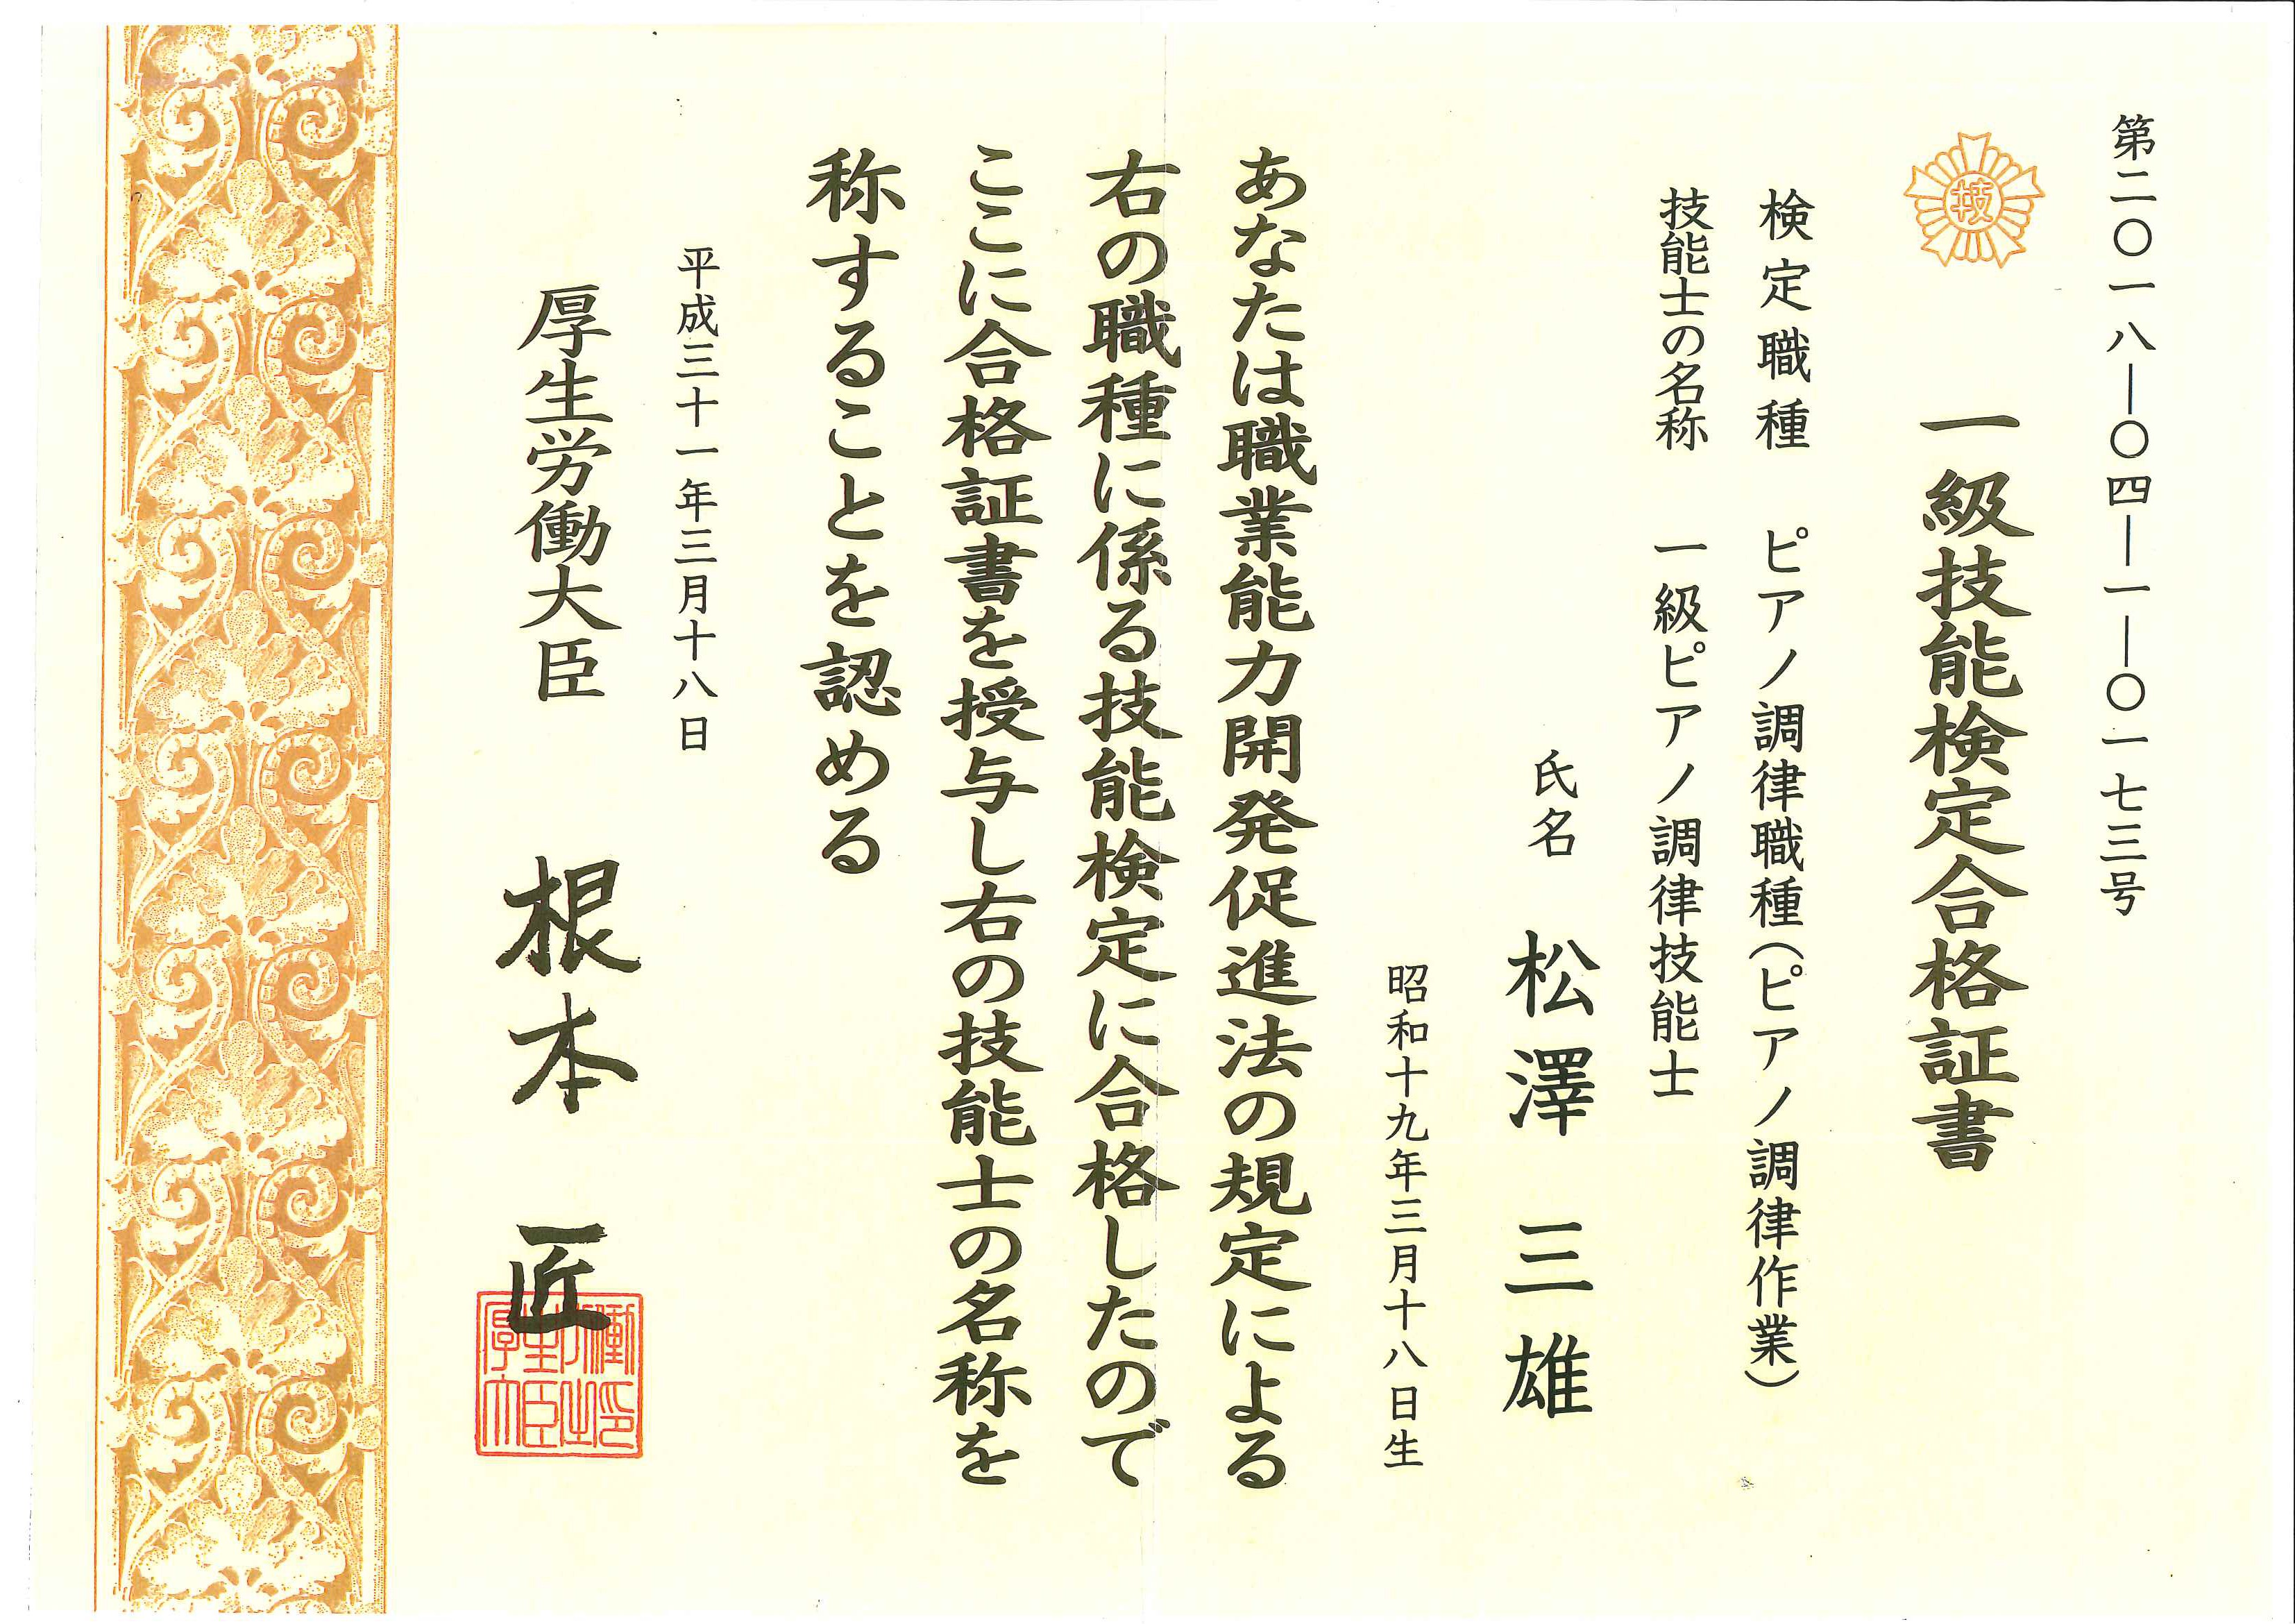 第二〇一八―〇四―一―〇一七三号
技
一級技能検定合格証書
検定職種 ピアノ調律職種(ピアノ調律作業)
技能士の名称 一級ピアノ調律技能士
氏名 松澤三雄
昭和十九年三月十八日生
あなたは職業能力開発促進法の規定による
右の職種に係る技能検定に合格したので
ここに合格証書を授与し右の技能士の名称を
称することを認める
平成三十一年三月十八日
厚生労働大臣 根本匠
働印
労之
生臣
厚大